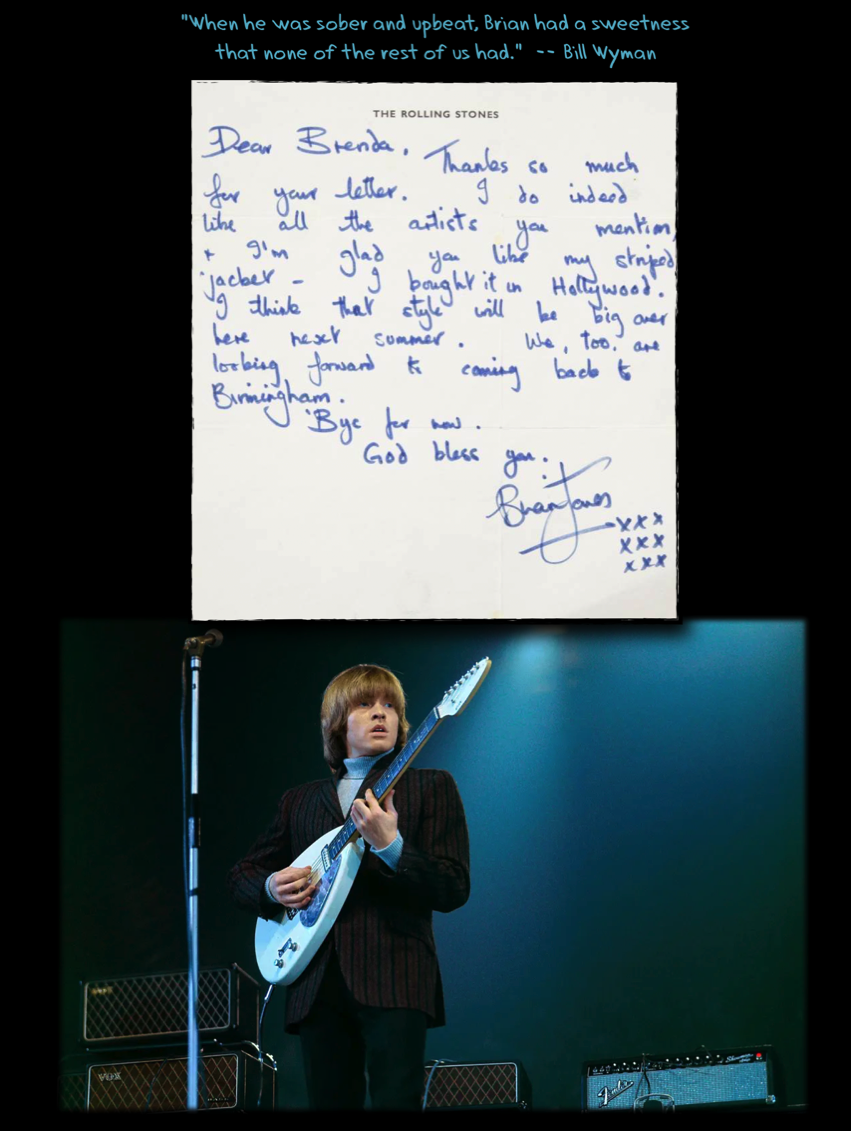 "When he was sober and upbeat, Brian had a sweetness
that none of the rest of us had." -- Bill Wyman
THE ROLLING STONES
Dear Brenda,
Thanks so much
for your letter. I do indeed
like all the artists you mention,
+ I'm glad you like my striped
jacket - I bought it in Hollywood.
I think that style will be big over
here next summer. We, too, are
looking forward to coming back to
Birmingham.
'Bye for now.
God bless you.
Brian Jones
x x x
x x x
x x x
VOX
Fender